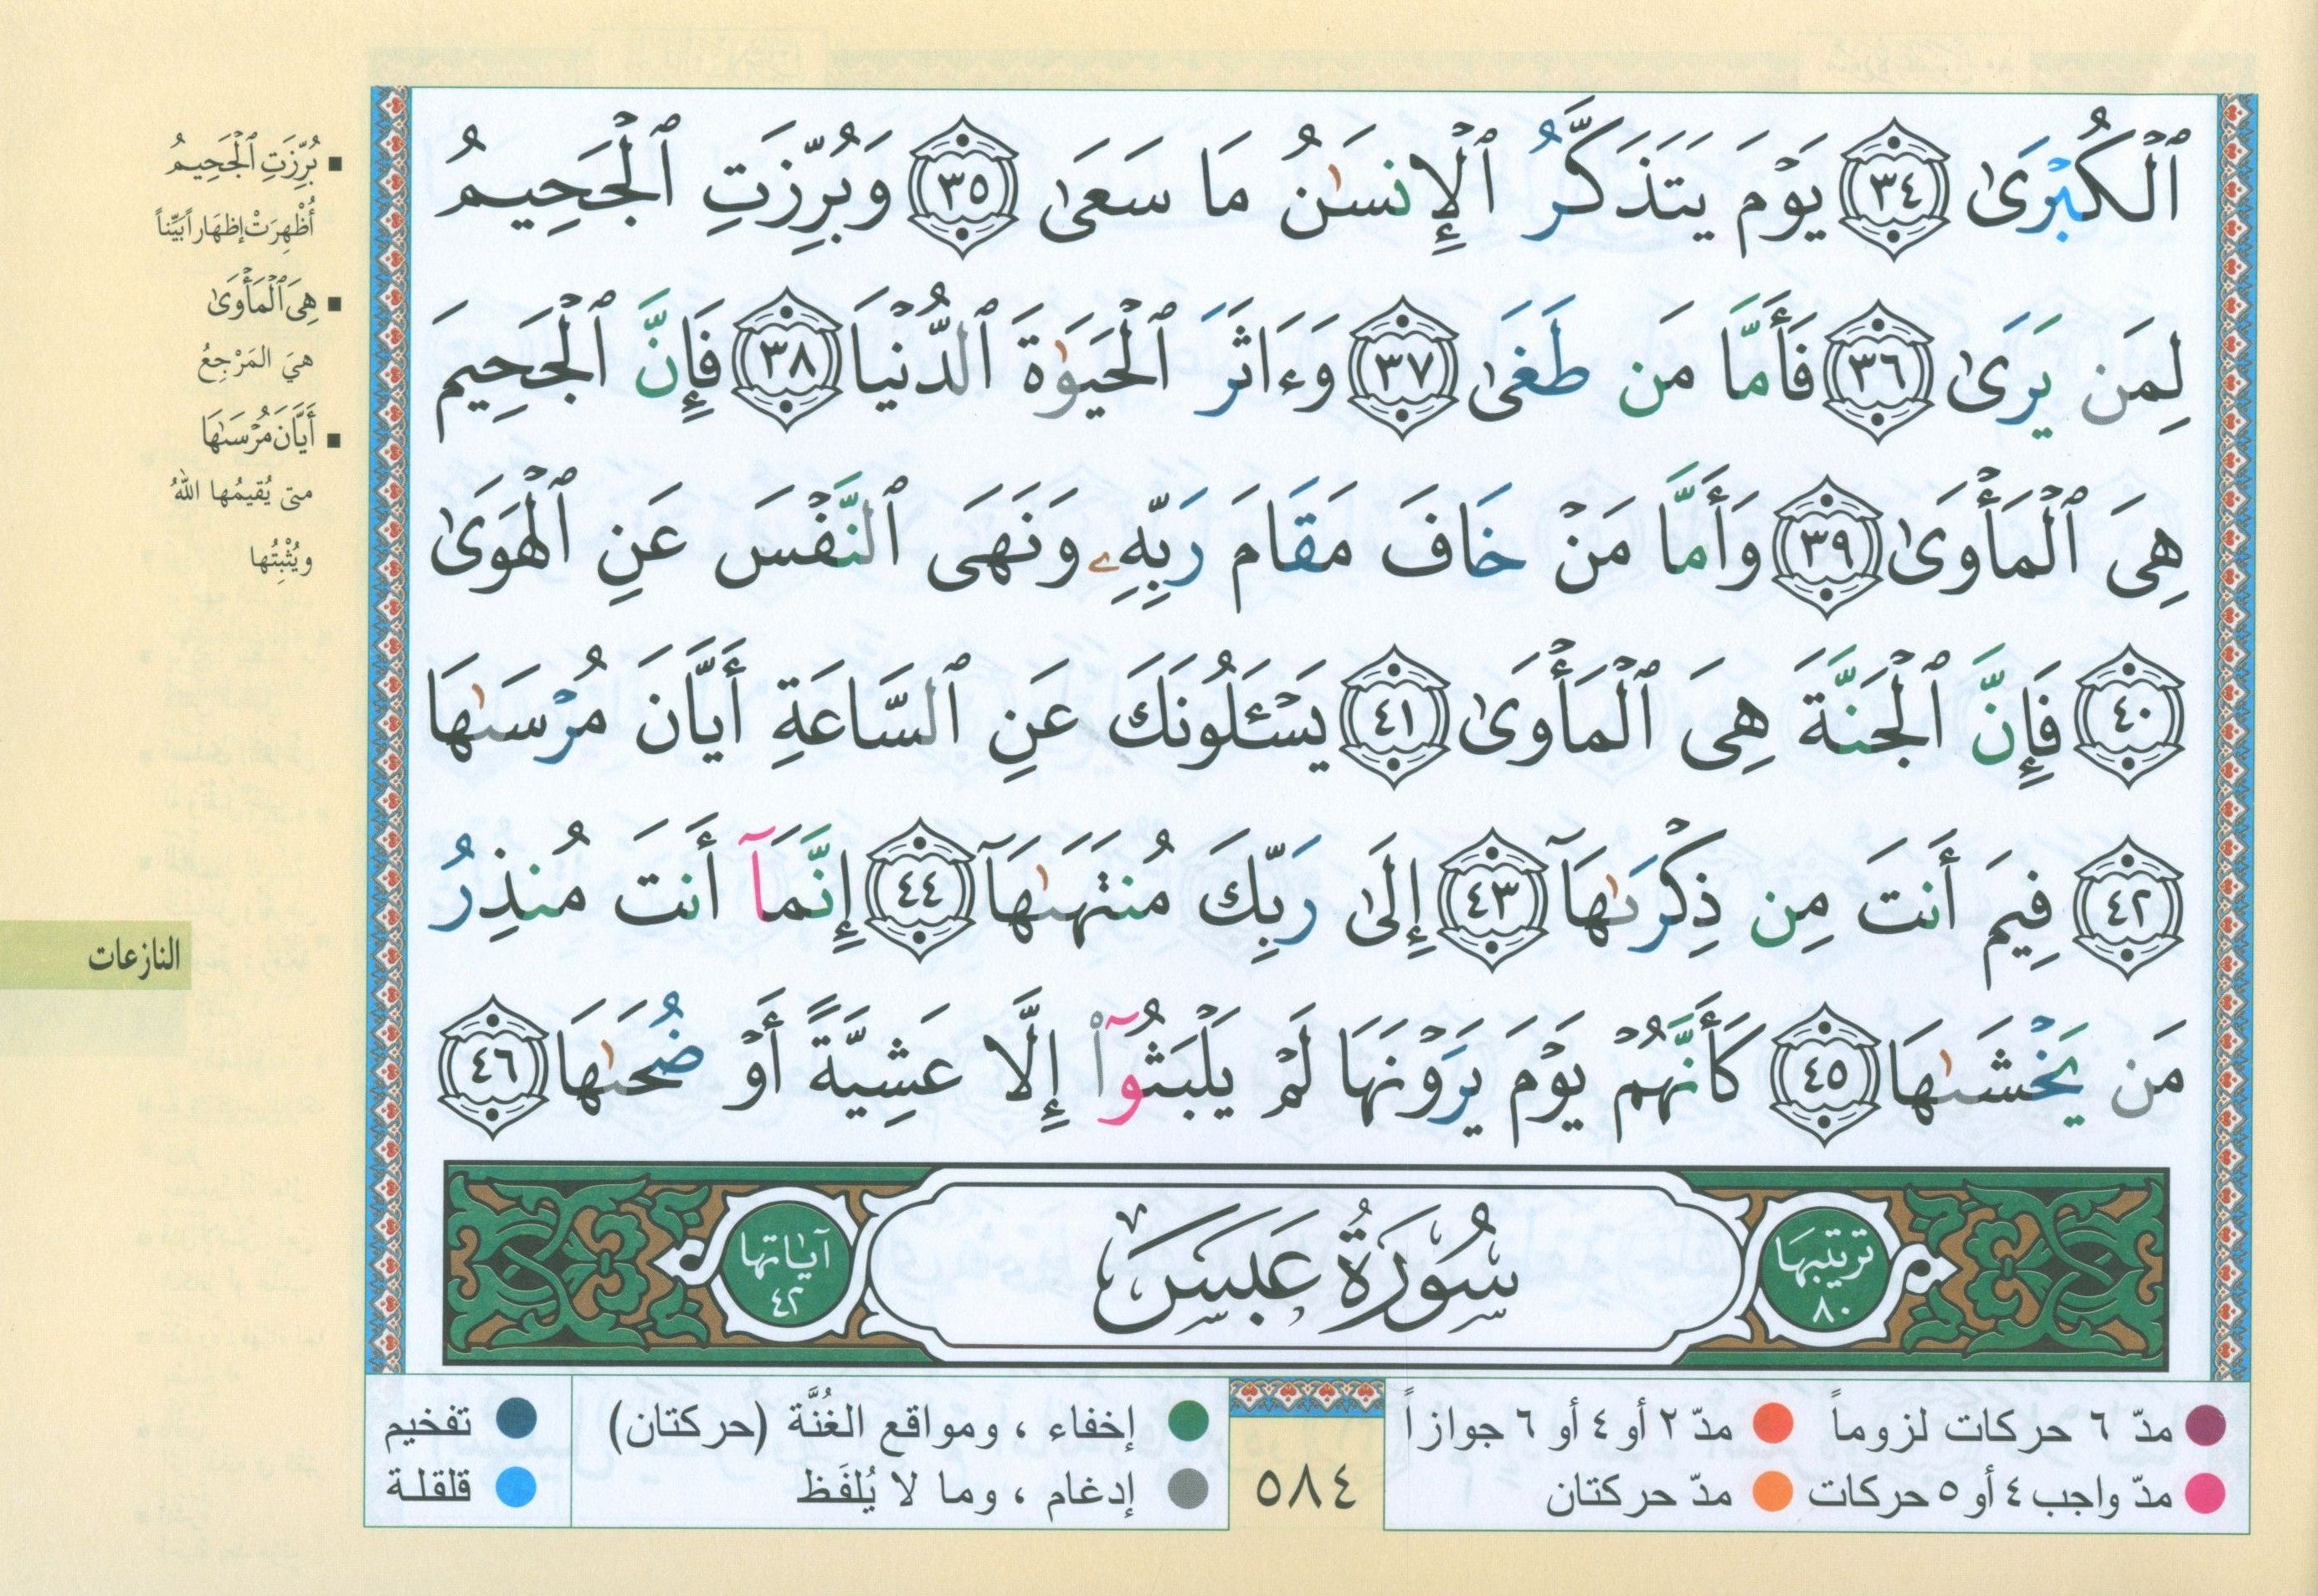 ٱلْكُبْرَىٰ ٣٤ يَوْمَ يَتَذَكَّرُ ٱلْإِنسَٰنُ مَا سَعَىٰ ٣٥ وَبُرِّزَتِ ٱلْجَحِيمُ
لِمَن يَرَىٰ ٣٦ فَأَمَّا مَن طَغَىٰ ٣٧ وَءَاثَرَ ٱلْحَيَوٰةَ ٱلدُّنْيَا ٣٨ فَإِنَّ ٱلْجَحِيمَ
هِىَ ٱلْمَأْوَىٰ ٣٩ وَأَمَّا مَنْ خَافَ مَقَامَ رَبِّهِۦ وَنَهَى ٱلنَّفْسَ عَنِ ٱلْهَوَىٰ
٤٠ فَإِنَّ ٱلْجَنَّةَ هِىَ ٱلْمَأْوَىٰ ٤١ يَسْـَٔلُونَكَ عَنِ ٱلسَّاعَةِ أَيَّانَ مُرْسَىٰهَا
٤٢ فِيمَ أَنتَ مِن ذِكْرَىٰهَآ ٤٣ إِلَىٰ رَبِّكَ مُنتَهَىٰهَآ ٤٤ إِنَّمَآ أَنتَ مُنذِرُ
مَن يَخْشَىٰهَا ٤٥ كَأَنَّهُمْ يَوْمَ يَرَوْنَهَا لَمْ يَلْبَثُوٓا۟ إِلَّا عَشِيَّةً أَوْ ضُحَىٰهَا ٤٦
ترتيبها ٨٠ سُورَةُ عَبَسَ آياتها ٤٢
■ بُرِّزَتِ ٱلْجَحِيمُ
أُظْهِرَتْ إظهَاراً بَيِّناً
■ هِىَ ٱلْمَأْوَىٰ
هيَ المَرْجِعُ
■ أَيَّانَ مُرْسَىٰهَا
متى يُقيمُها اللهُ
ويُثْبِتُها
النازعات
مدّ ٦ حركات لزوماً مدّ ٢ أو ٤ أو ٦ جوازاً
مدّ واجب ٤ أو ٥ حركات مدّ حركتان
٥٨٤
إخفاء ، ومواقع الغُنَّة (حركتان) تفخيم
إدغام ، وما لا يُلفَظ قلقلة